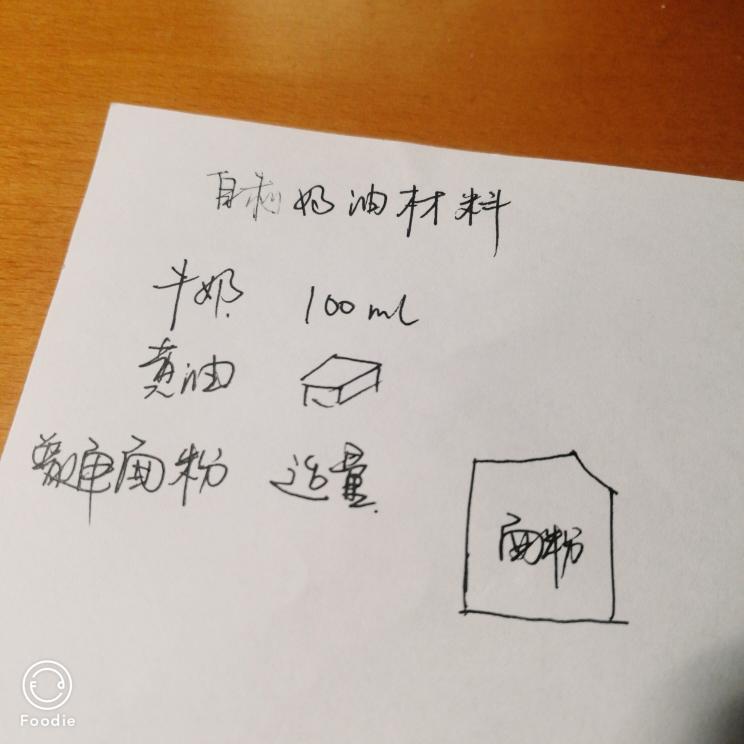 自制奶油材料
牛奶 100ml
黄油
面粉 适量
面粉
Foodie